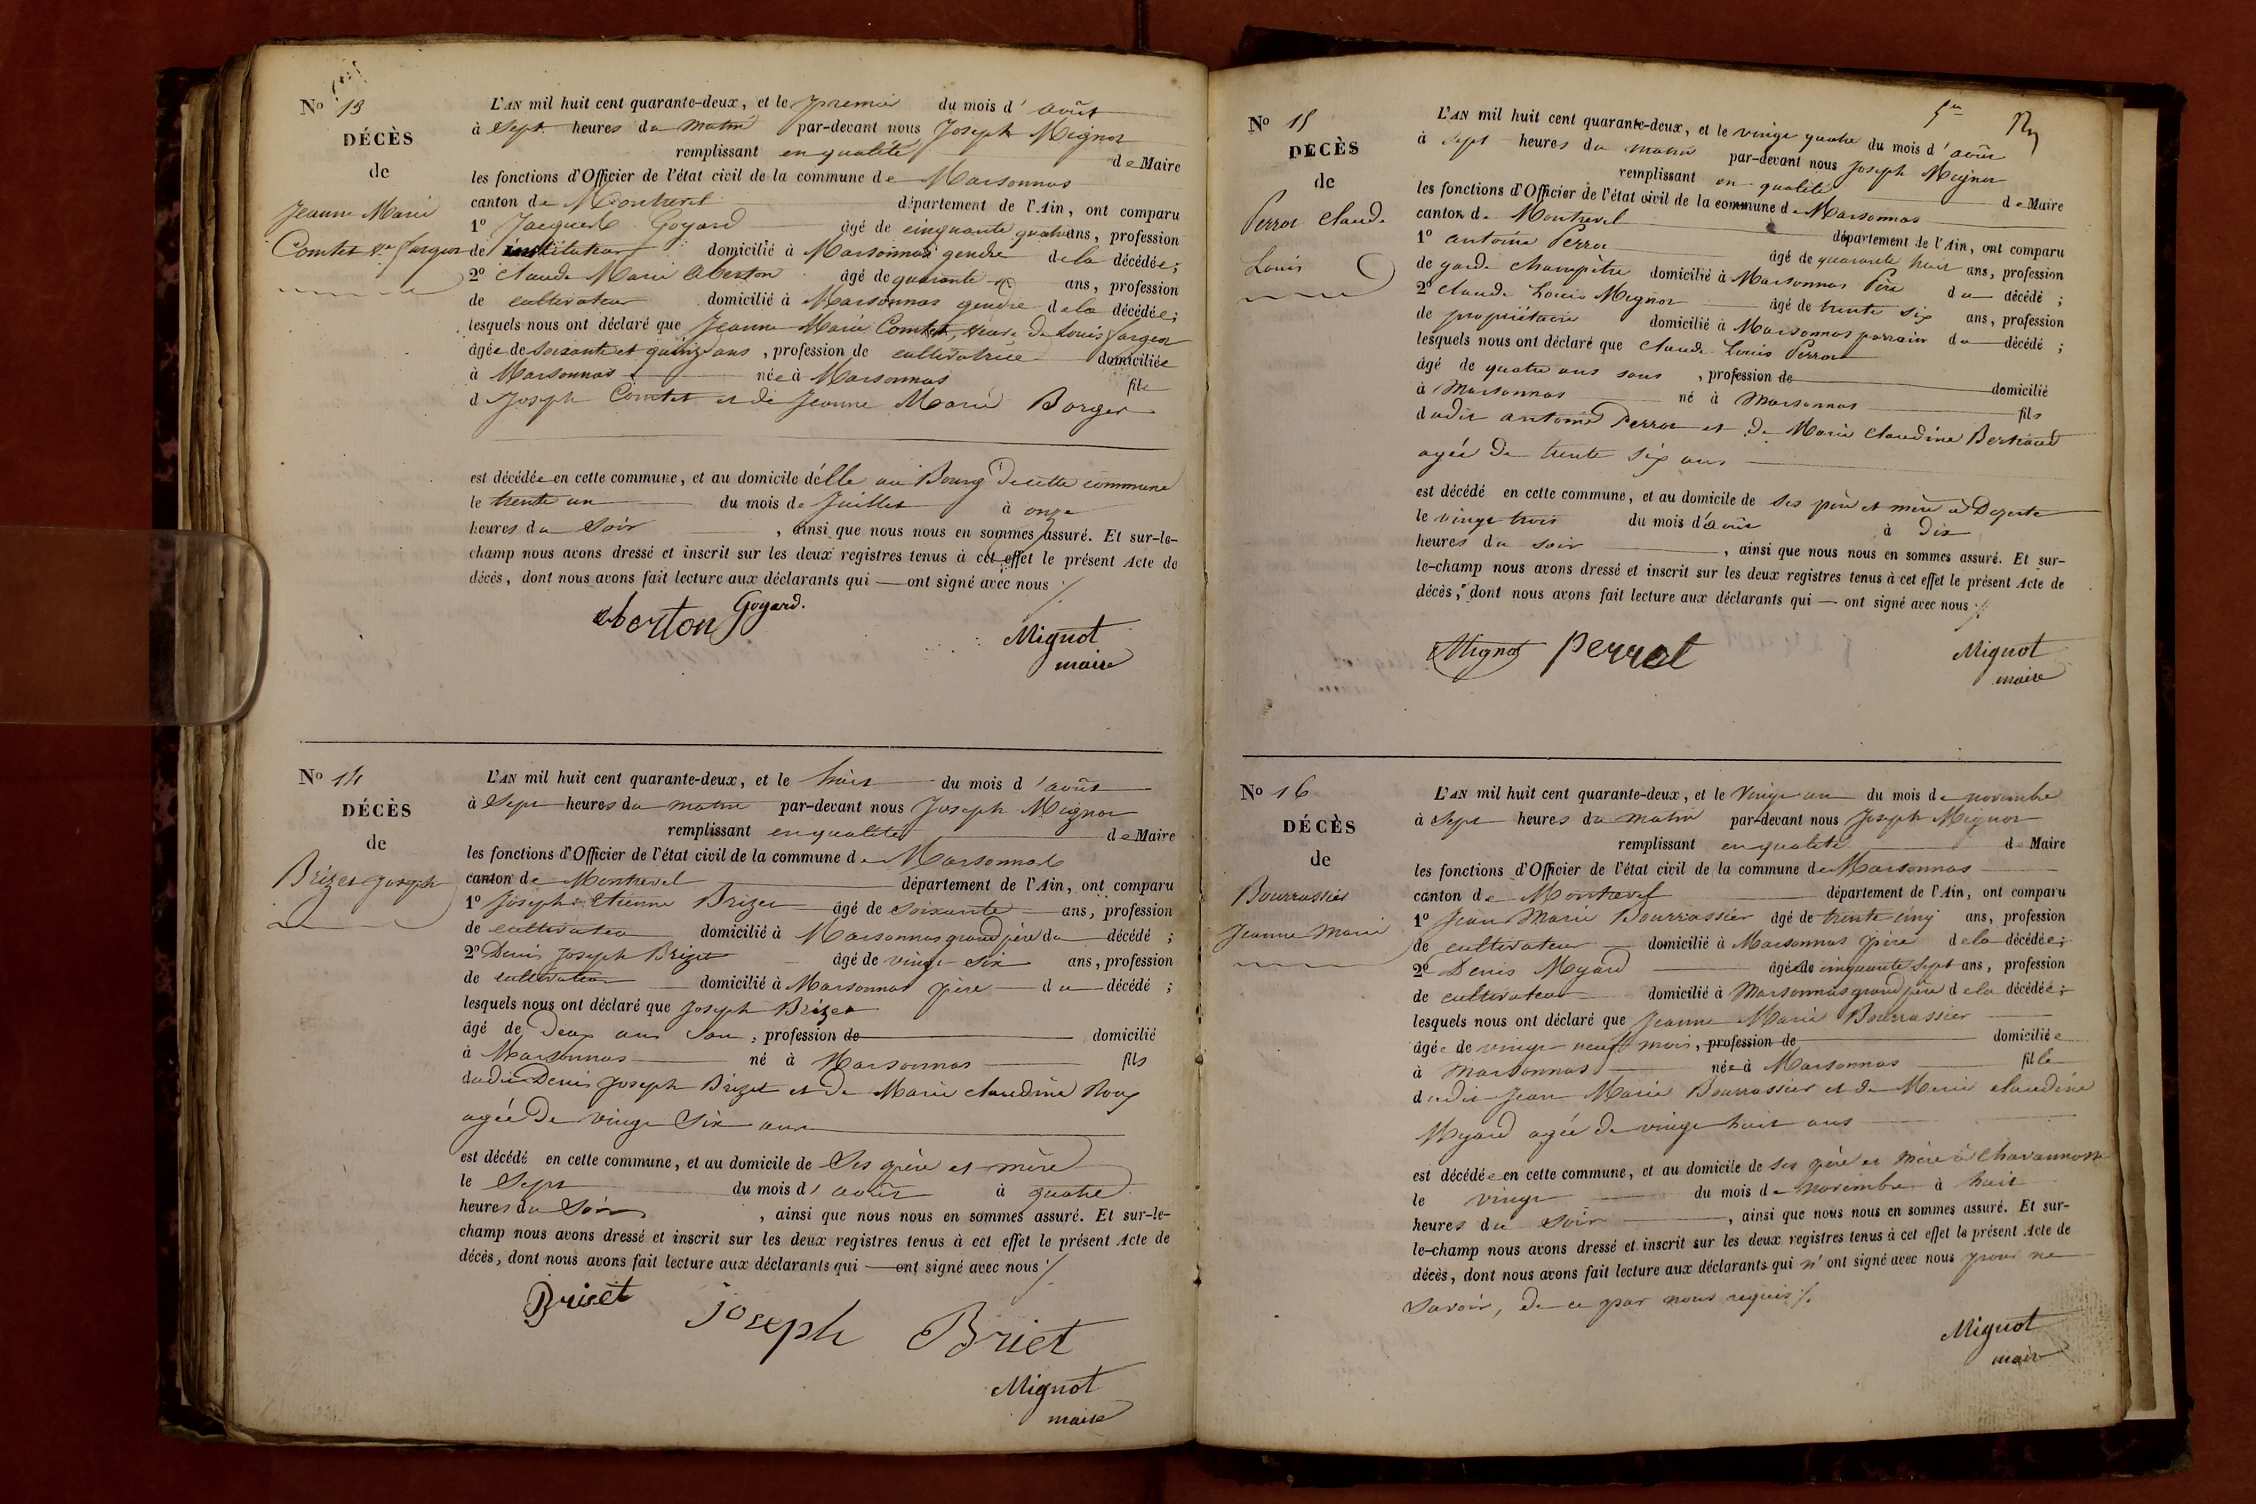 No 13
DÉCÈS
de
Jeanne Marie
Comtet Ve
L'AN mil huit cent quarante-deux, et le premier du mois d'août
à Sept heures du matin par-devant nous Joseph Mignot
remplissant en qualité de Maire
les fonctions d'Officier de l'état civil de la commune de Marsonnas
canton de Montrevel département de l'Ain, ont comparu
1o Goyard âgé de cinquante quatre ans, profession
de instituteur domicilié à Marsonnas gendre de la décédée;
2o Claude Marie Aberton âgé de quarante ans, profession
de cultivateur domicilié à Marsonnas gendre de la décédée;
lesquels nous ont déclaré que Jeanne Marie Comtet, veuve de Louis
âgée de soixante et quinze ans, profession de cultivatrice domiciliée
à Marsonnas née à Marsonnas fille
d Joseph Comtet et de Jeanne Marie Borger
est décédée en cette commune, et au domicile d'elle au Bourg de cette commune
le trente un du mois de Juillet à onze
heures du Soir, ainsi que nous nous en sommes assuré. Et sur-le-
champ nous avons dressé et inscrit sur les deux registres tenus à cet effet le présent Acte de
décès, dont nous avons fait lecture aux déclarants qui ont signé avec nous
Aberton Goyard.
Mignot
maire
No 14
DÉCÈS
de
Brizet Joseph
L'AN mil huit cent quarante-deux, et le huit du mois d'août
à Sept heures du matin par-devant nous Joseph Mignot
remplissant en qualité de Maire
les fonctions d'Officier de l'état civil de la commune de Marsonnas
canton de Montrevel département de l'Ain, ont comparu
1o Joseph Etienne Brizet âgé de soixante ans, profession
de cultivateur domicilié à Marsonnas grand père du décédé;
2o Denis Joseph Brizet âgé de vingt six ans, profession
de cultivateur domicilié à Marsonnas père du décédé;
lesquels nous ont déclaré que Joseph Brizet
âgé de Deux ans, profession de domicilié
à Marsonnas né à Marsonnas fils
dudit Denis Joseph Brizet et de Marie Claudine Roux
agée De vingt Six ans
est décédé en cette commune, et au domicile de Ses père et mère
le Sept du mois d'août à quatre
heures du Soir, ainsi que nous nous en sommes assuré. Et sur-le-
champ nous avons dressé et inscrit sur les deux registres tenus à cet effet le présent Acte de
décès, dont nous avons fait lecture aux déclarants qui ont signé avec nous
Briset joseph Briet
Mignot
maire
No 15
DÉCÈS
de
Perrot Claude
Louis
L'AN mil huit cent quarante-deux, et le vingt quatre du mois d'août
à sept heures du matin par-devant nous Joseph Mignot
remplissant en qualité de Maire
les fonctions d'Officier de l'état civil de la commune de Marsonnas
canton de Montrevel département de l'Ain, ont comparu
1o antoine Perrot âgé de quarante huit ans, profession
de garde champêtre domicilié à Marsonnas Père du décédé;
2o Claude Louis Mignot âgé de trente six ans, profession
de propriétaire domicilié à Marsonnas parrain du décédé;
lesquels nous ont déclaré que Claude Louis Perrot
âgé de quatre ans, profession de domicilié
à Marsonnas né à Marsonnas fils
dudit antoine Perrot et de Marie Claudine Bertraud
agée De trente Six ans
est décédé en cette commune, et au domicile de ses père et mère à
le vingt trois du mois d'août à Dix
heures du soir, ainsi que nous nous en sommes assuré. Et sur-
le-champ nous avons dressé et inscrit sur les deux registres tenus à cet effet le présent Acte de
décès, dont nous avons fait lecture aux déclarants qui ont signé avec nous
Mignot perrot
Mignot
maire
No 16
DÉCÈS
de
Bourrassier
Jeanne Marie
L'AN mil huit cent quarante-deux, et le Vingt un du mois de novembre
à sept heures du matin par-devant nous Joseph Mignot
remplissant en qualité de Maire
les fonctions d'Officier de l'état civil de la commune de Marsonnas
canton de Montrevel département de l'Ain, ont comparu
1o Jean Marie Bourrassier âgé de trente cinq ans, profession
de cultivateur domicilié à Marsonnas père de la décédée;
2o Denis Myard âgé de cinquante Sept ans, profession
de cultivateur domicilié à Marsonnas grand père de la décédée;
lesquels nous ont déclaré que Jeanne Marie Bourrassier
âgée de vingt neuf mois, profession de domiciliée
à Marsonnas née à Marsonnas fille
dudit Jean Marie Bourrassier et de Marie Claudine
Myard agée de vingt huit ans
est décédée en cette commune, et au domicile de ses père et mère à
le vingt du mois de novembre à huit
heures du soir, ainsi que nous nous en sommes assuré. Et sur-
le-champ nous avons dressé et inscrit sur les deux registres tenus à cet effet le présent Acte de
décès, dont nous avons fait lecture aux déclarants qui n'ont signé avec nous pour ne
savoir, de ce par nous requis
Mignot
maire